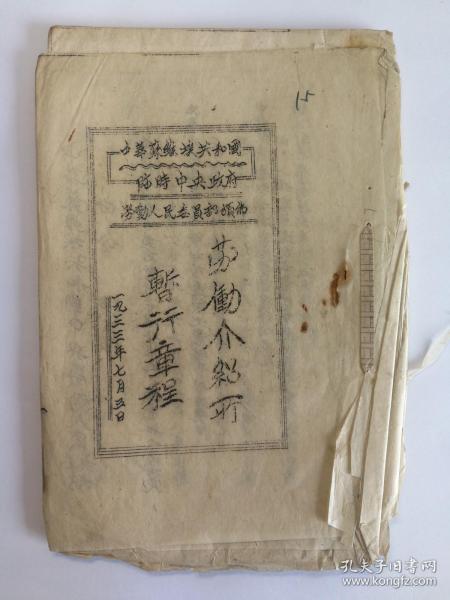 15
中華蘇維埃共和國
臨時中央政府
勞動人民委員部頒佈
勞働介紹所
暫行章程
一九三三年七月五日
孔夫子旧书网
www.kongfz.com